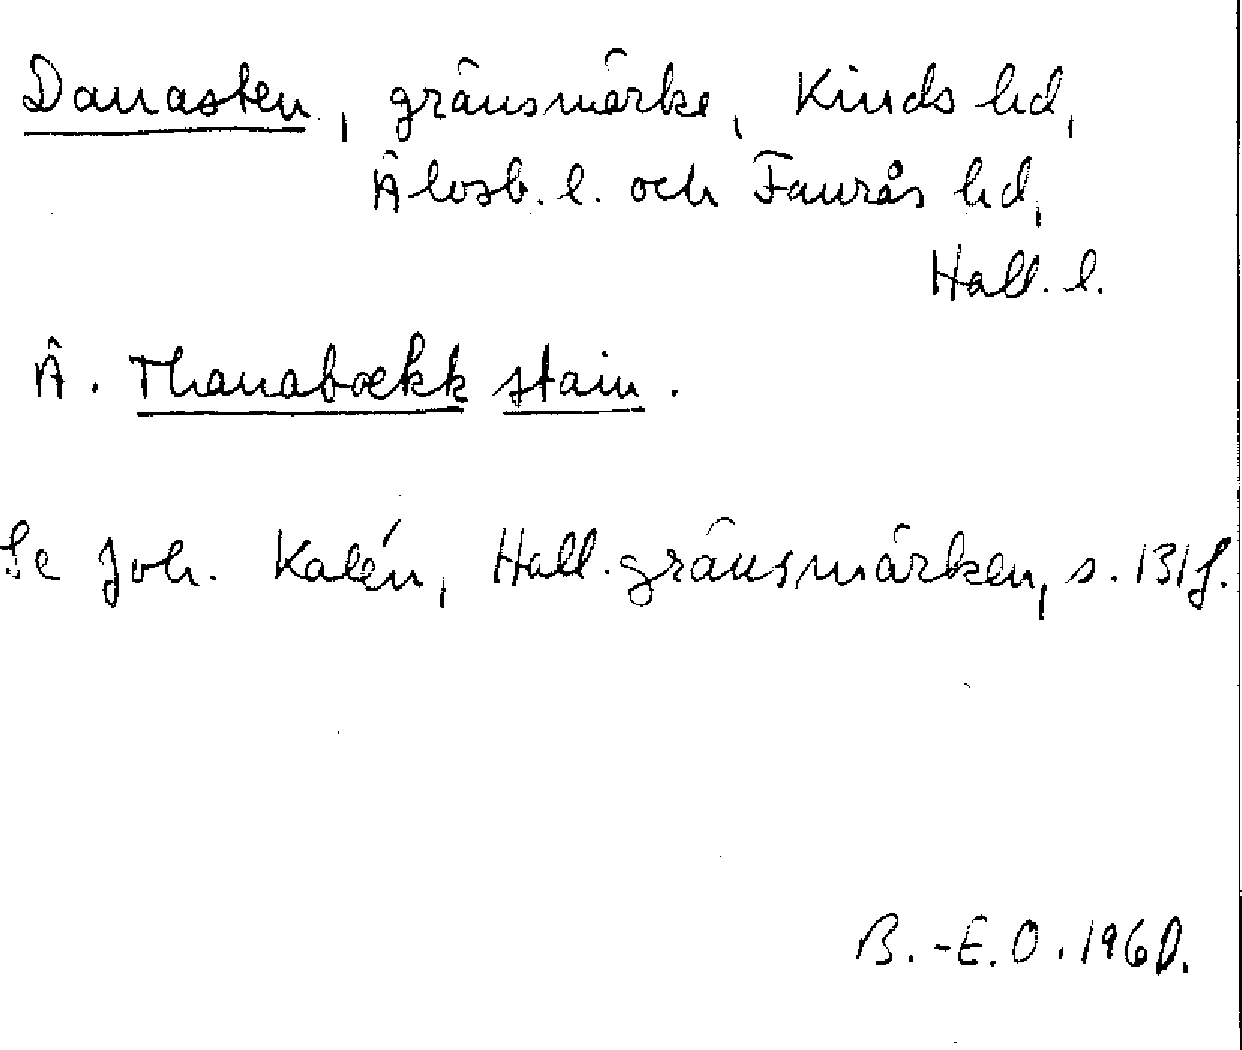 Danasten, gränsmärke, Kinds hd,
Älvsb. l. och Faurås hd,
Hall. l.
Ä. Thanabækk stain.
Se Joh. Kalén, Hall. gränsmärken, s. 131 f.
B.-E. O. 1960.